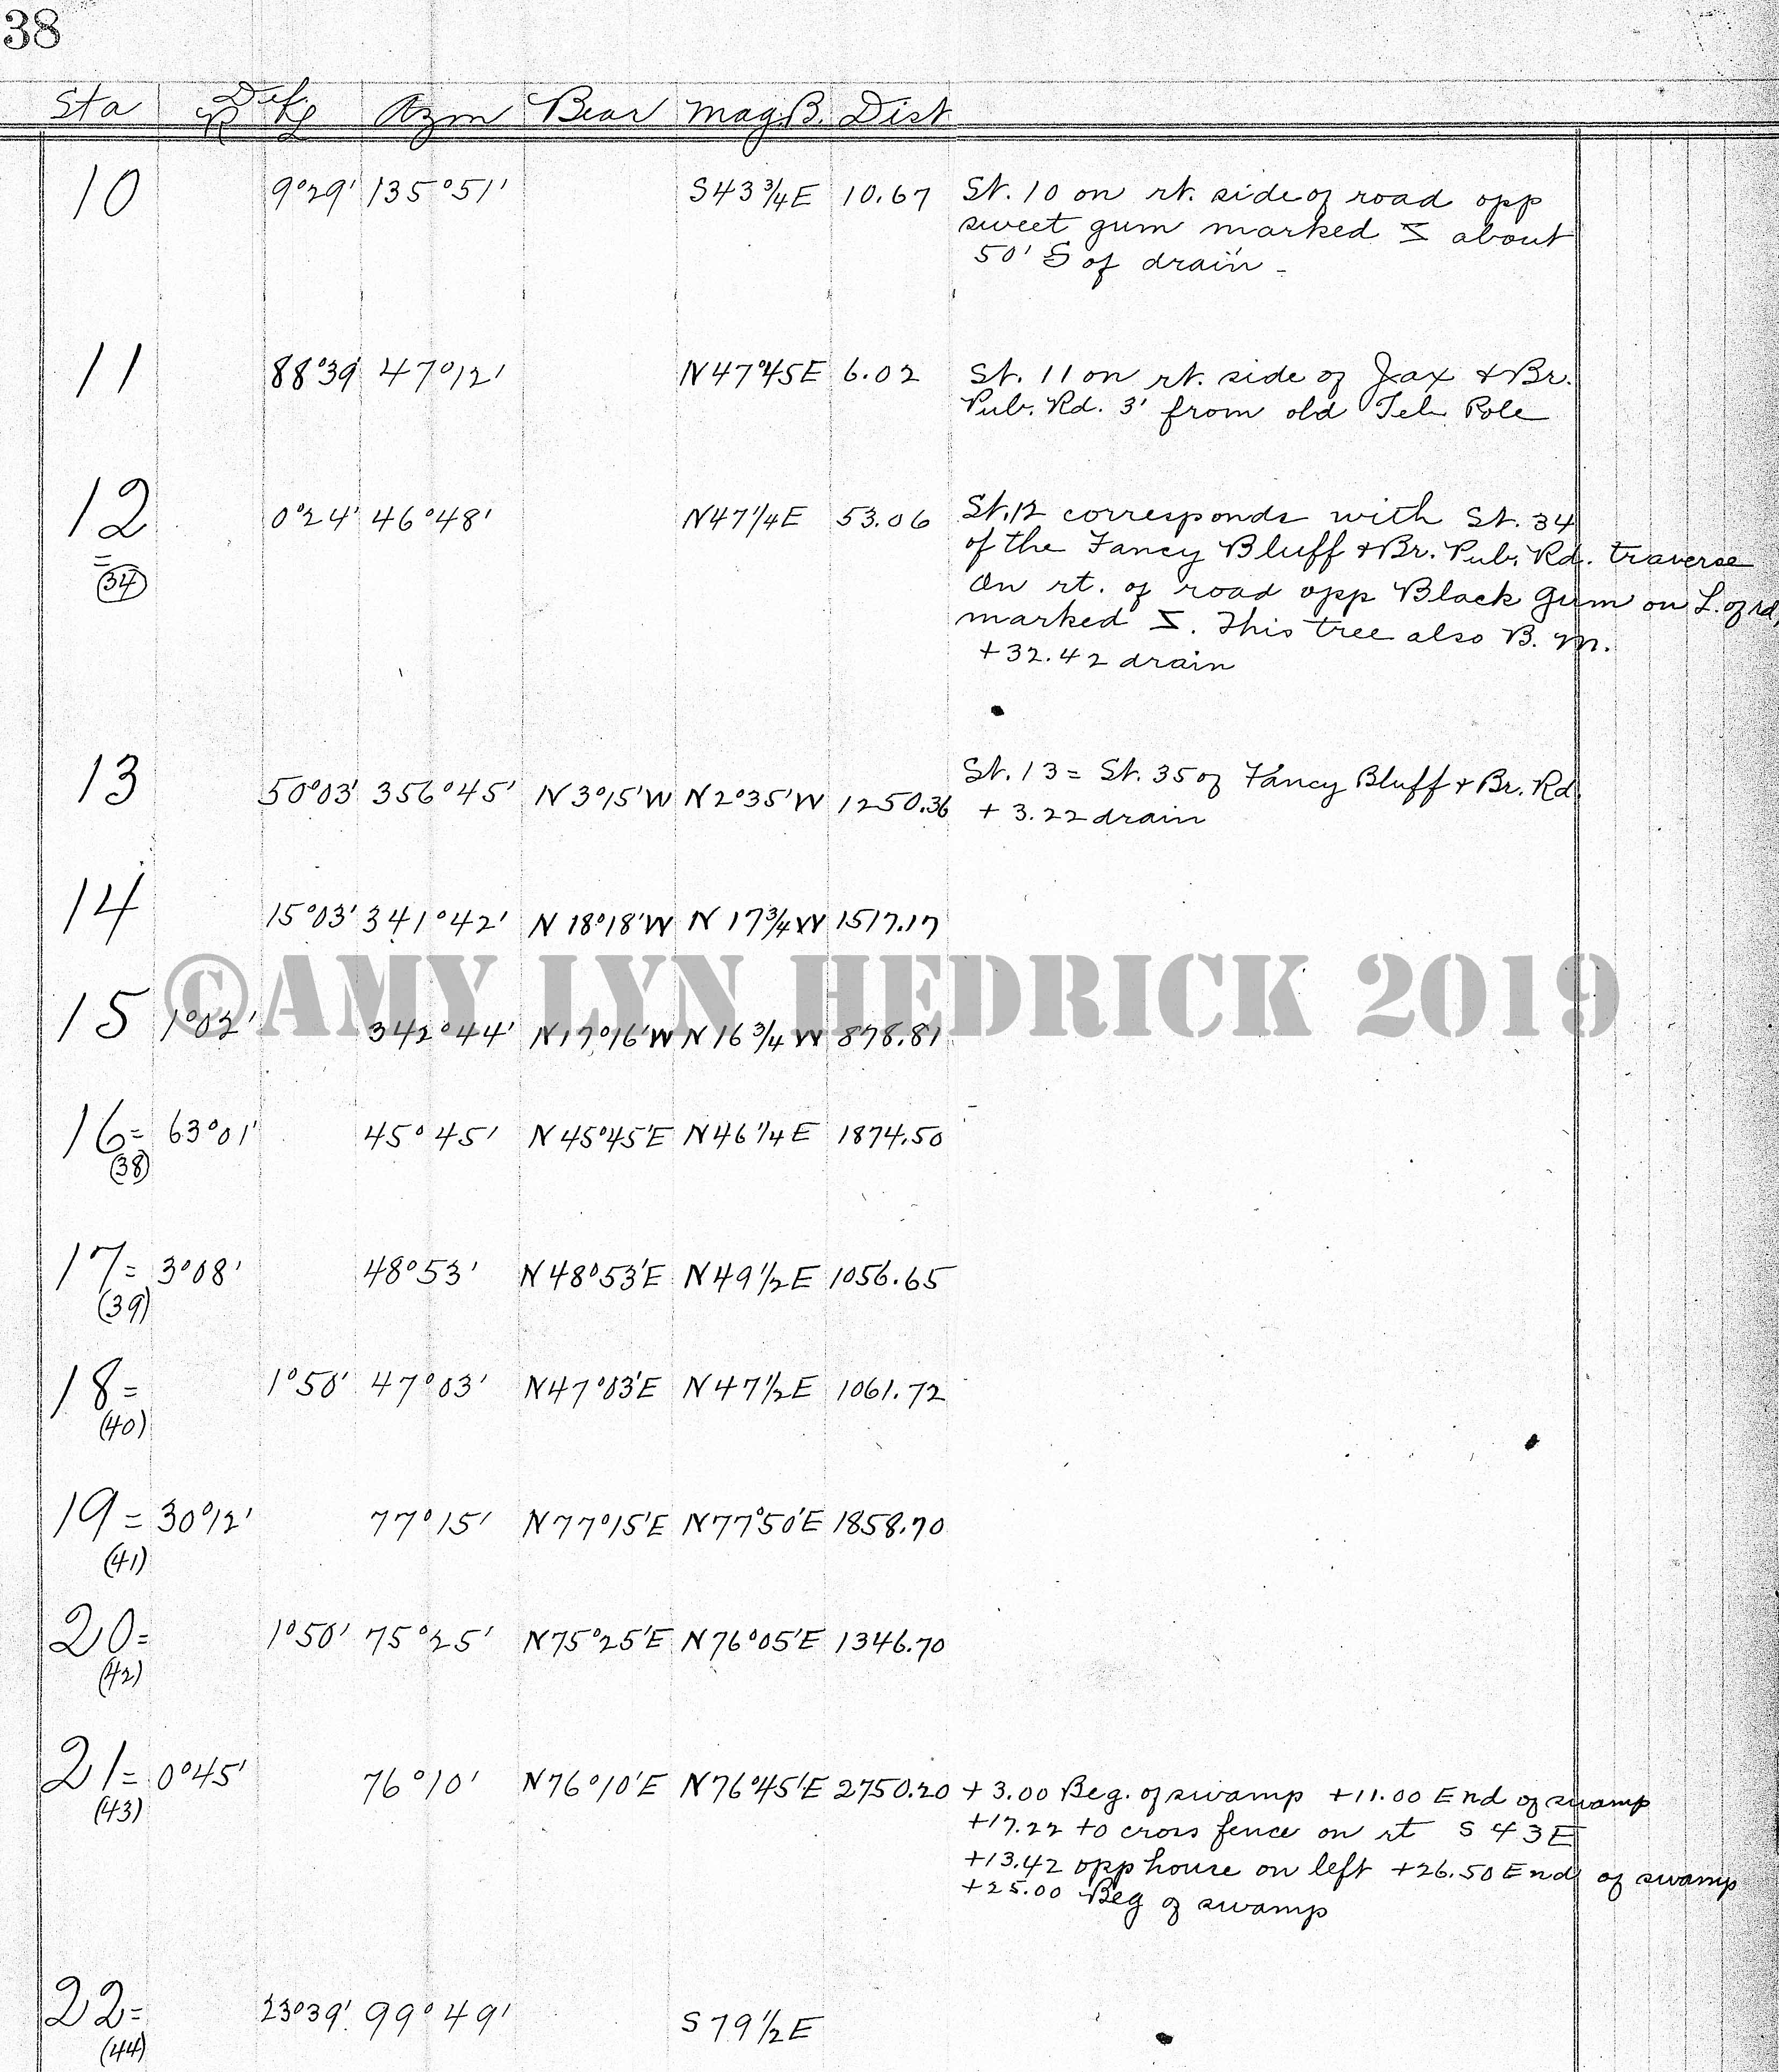 38
Sta Def. R L Azm Bear Mag B. Dist
10 9°29' 135°51' S43 3/4 E 10.67 St. 10 on rt. side of road opp
sweet gum marked Σ about
50' S of drain -
11 88°39' 47°12' N47°45E 6.02 St. 11 on rt. side of Jax & Br.
Pub. Rd. 3' from old Tel. Pole
12 0°24' 46°48' N47 1/4 E 53.06 St. 12 corresponds with St. 34
= of the Fancy Bluff & Br. Pub. Rd. traverse
(34) On rt. of road opp Black Gum on L. of rd,
marked Σ. This tree also B. M.
+32.42 drain
13 50°03' 356°45' N3°15'W N2°35'W 1250.36 St. 13 = St. 35 of Fancy Bluff & Br. Rd.
+ 3.22 drain
14 15°03' 341°42' N18°18'W N17 3/4 W 1517.17
©AMY LYN HEDRICK 2019
15 1°02' 342°44' N17°16'W N16 3/4 W 878.81
16= 63°01' 45°45' N45°45'E N46 1/4 E 1874.50
(38)
17= 3°08' 48°53' N48°53'E N49 1/2 E 1056.65
(39)
18= 1°50' 47°03' N47°03'E N47 1/2 E 1061.72
(40)
19= 30°12' 77°15' N77°15'E N77°50'E 1858.70
(41)
20= 1°50' 75°25' N75°25'E N76°05'E 1346.70
(42)
21= 0°45' 76°10' N76°10'E N76°45'E 2750.20 + 3.00 Beg. of swamp +11.00 End of swamp
(43) +17.22 to cross fence on rt S 43 E
+13.42 opp house on left +26.50 End of swamp
+25.00 Beg of swamp
22= 23°39' 99°49' S79 1/2 E
(44)